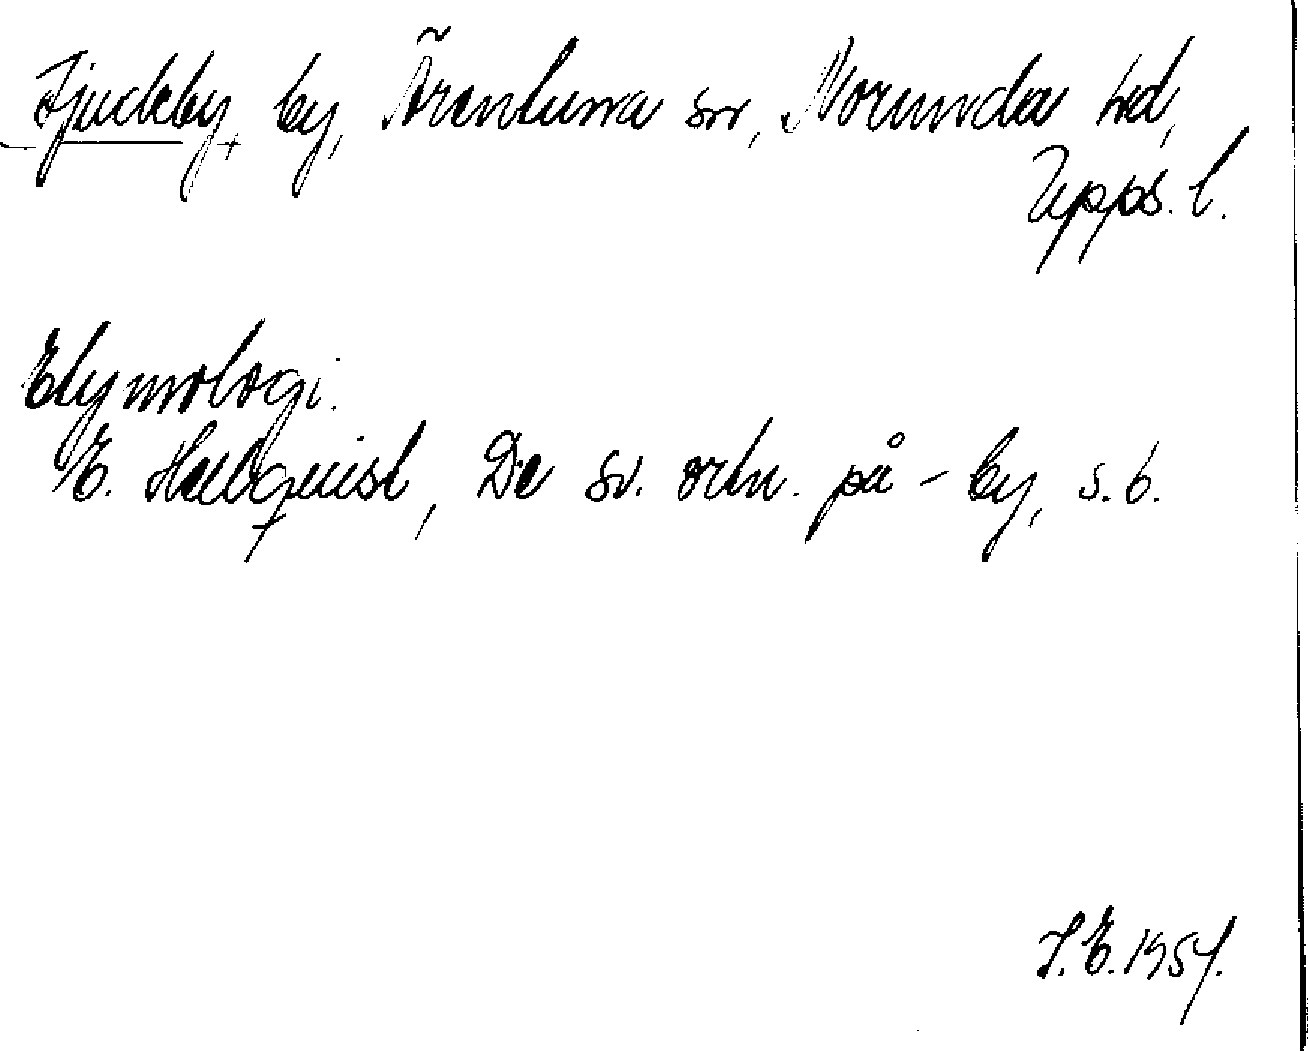 Fjuckby, by, Ärentuna sn, Norunda hd,
Upps. l.
Etymologi.
E. Hellquist, De sv. ortn. på -by, s. 6.
I.E. 1957.